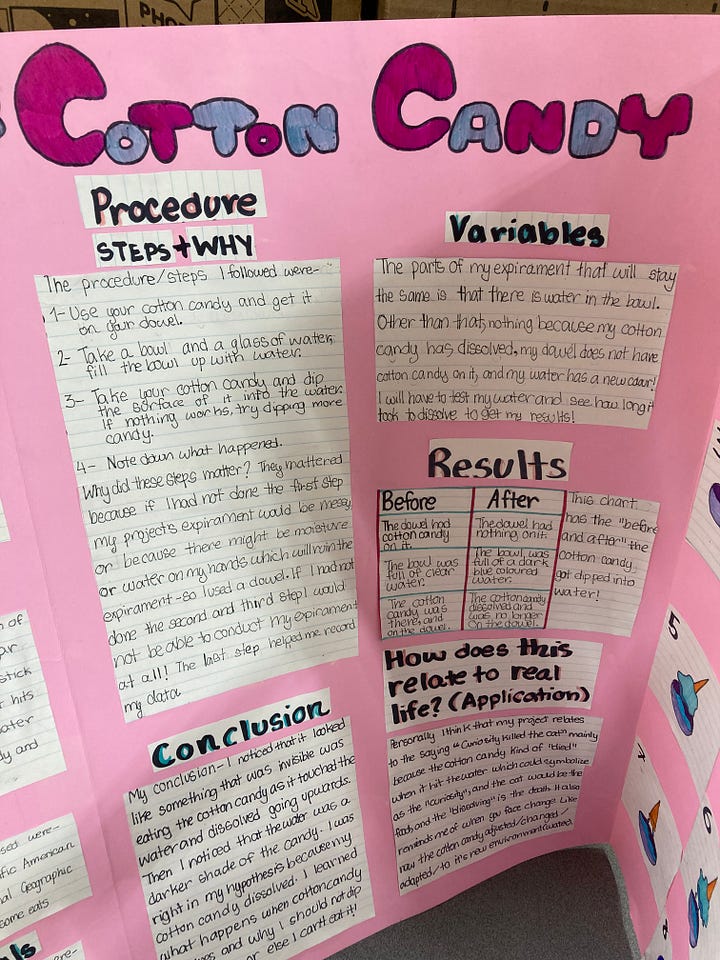 COTTON CANDY
Procedure
STEPS + WHY
The procedure/steps I followed were-
1- Use your cotton candy and get it
on your dowel.
2- Take a bowl and a glass of water,
fill the bowl up with water.
3- Take your cotton candy and dip
the surface of it into the water.
If nothing works, try dipping more
candy.
4- Note down what happened.
Why did these steps matter? They mattered
because if I had not done the first step
my projects expirament would be messy
or because there might be moisture
or water on my hands which will ruin the
expirament - so I used a dowel. If I had not
done the second and third step I would
not be able to conduct my expirament
at all! The last step helped me record
my data
Conclusion
My conclusion- I noticed that it looked
like something that was invisible was
eating the cotton candy as it touched the
water and dissolved going upwards.
Then I noticed that the water was a
darker shade of the candy. I was
right in my hypothesis because my
cotton candy dissolved. I learned
what happens when cotton candy
and why I should not dip
or else I can't eat it!
Variables
The parts of my expirament that will stay
the same is that there is water in the bowl.
Other than that, nothing because my cotton
candy has dissolved, my dowel does not have
cotton candy on it, and my water has a new colour!
I will have to test my water and see how long it
took to dissolve to get my results!
Results
Before
After
The dowel had
cotton candy
on it.
The dowel had
nothing on it.
The bowl was
full of clear
water.
The bowl was
full of a dark
blue coloured
water.
The cotton
candy was
there, and
on the dowel.
The cotton candy
dissolved and
was no longer
on the dowel.
This chart
has the "before
and after" the
cotton candy
got dipped into
water!
How does this
relate to real
life? (Application)
Personally I think that my project relates
to the saying "Curiosity killed the cat" mainly
because the cotton candy kind of "died"
when it hit the water which could symbolize
as the "curiosity", and the cat would be the
food, and the "dissolving" is the death. It also
reminds me of when you face change. Like
how the cotton candy adjusted/changed/
adapted/to it's new environment (water).
n of
stick
hits
ater
dy and
sed were-
ific American
al Geographic
some eals
ls
ere-
5
4
6